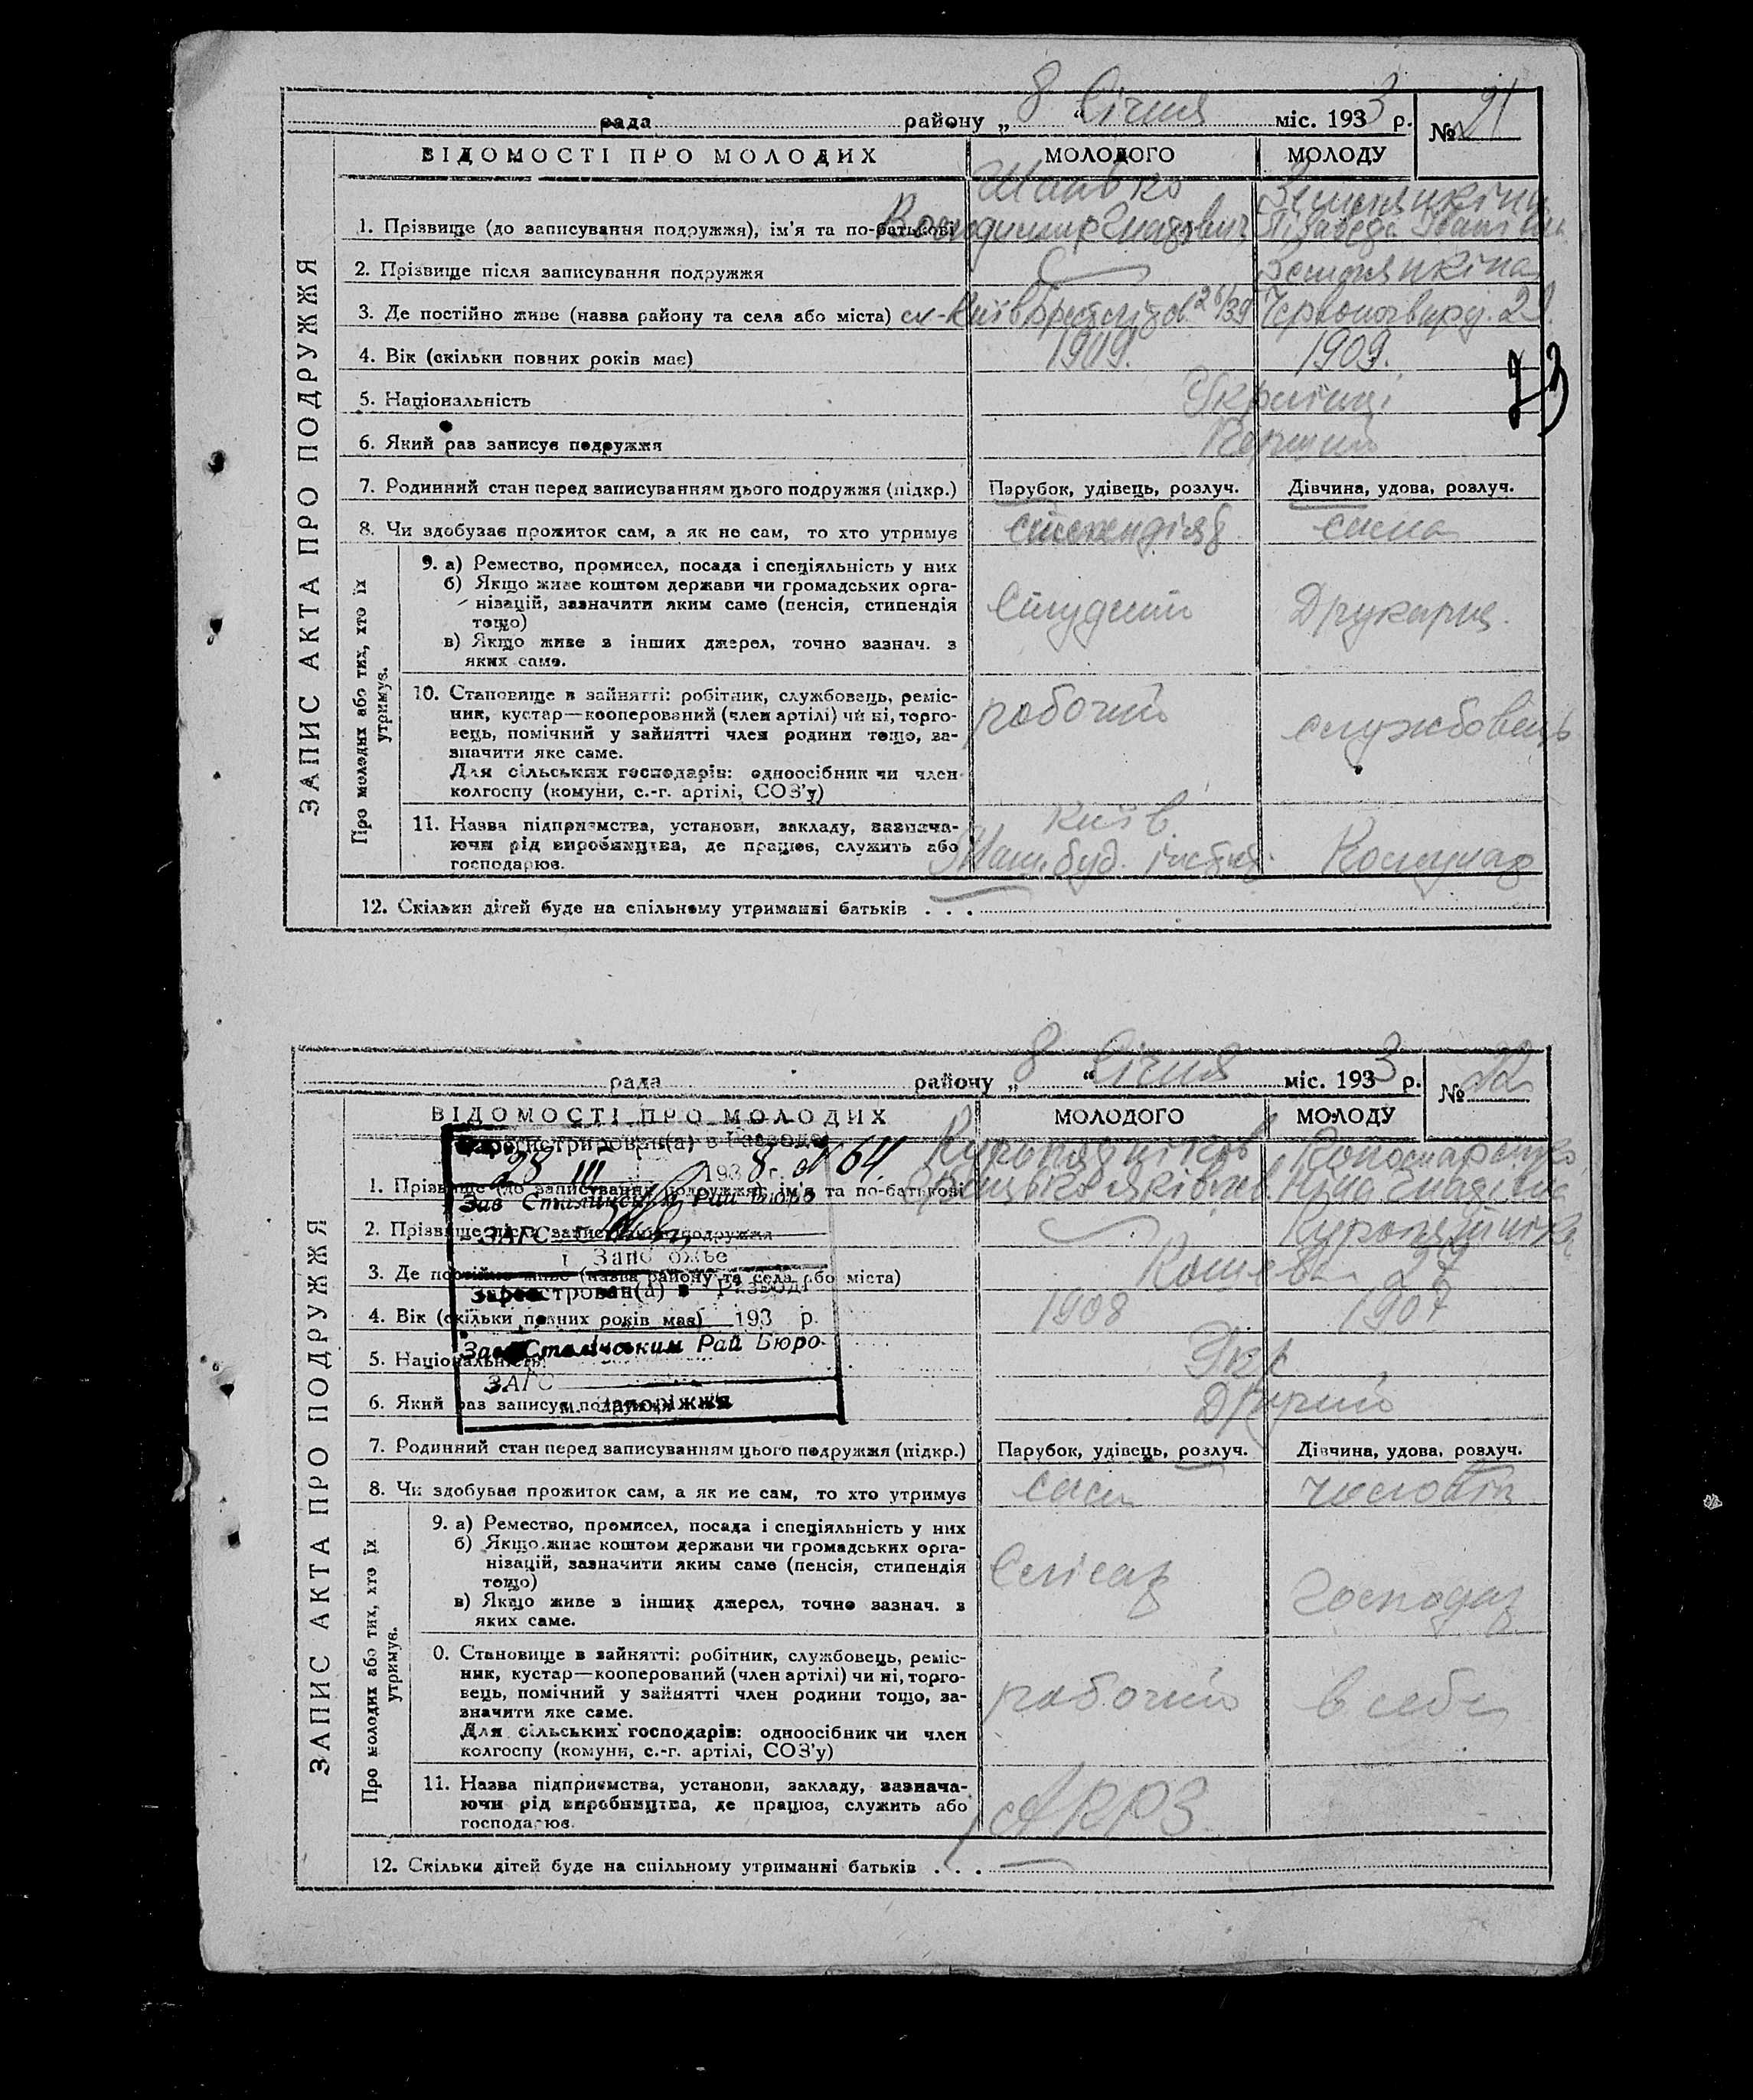 рада району „ 8 “ Січня міс. 193 3 р. № 21
ВІДОМОСТІ ПРО МОЛОДИХ МОЛОДОГО МОЛОДУ
ЗАПИС АКТА ПРО ПОДРУЖЖЯ
Шапько
1. Прізвище (до записування подружжя), ім'я та по-батькові Володимир Гнатович Лізавета Іванівна
2. Прізвище після записування подружжя Земнянкіна
3. Де постійно живе (назва району та села або міста) ст-Київ 26/39 Червоногвард. 29.
4. Вік (скільки повних років має) 1909. 1909.
73
5. Національність Українці
6. Який раз записує подружжя Перший
7. Родинний стан перед записуванням цього подружжя (підкр.) Парубок, удівець, розлуч. Дівчина, удова, розлуч.
8. Чи здобуває прожиток сам, а як не сам, то хто утримує стипендія сама
Про молодих або тих, хто їх утримує.
9. а) Ремество, промисел, посада і спеціяльність у них
б) Якщо живе коштом держави чи громадських орга-
нізацій, зазначити яким саме (пенсія, стипендія
тощо)
Студент Друкарка
в) Якщо живе з інших джерел, точно зазнач. з
яких саме.
10. Становище в зайнятті: робітник, службовець, реміс-
ник, кустар—кооперований (член артілі) чи ні, торго-
вець, помічний у зайнятті член родини тощо, за-
значити яке саме.
робочий службовець
Для сільських господарів: одноосібник чи член
колгоспу (комуни, с.-г. артілі, СОЗ'у)
Київ
11. Назва підприємства, установи, закладу, зазнача-
ючи рід виробництва, де працює, служить або
господарює.
Маш. буд. інстит. Комунар
12. Скільки дітей буде на спільному утриманні батьків . . .
рада району „ 8 “ Січня міс. 193 3 р. № 22
ВІДОМОСТІ ПРО МОЛОДИХ МОЛОДОГО МОЛОДУ
ЗАПИС АКТА ПРО ПОДРУЖЖЯ
Зарегистрирован(а) в Разводе
28 III 1938 г. № 64
Зав Сталинским Рай Бюро
ЗАГС
г. Запорожье
Зареєстрован(а) в Разводі
193 р.
Зав Сталінським Рай Бюро
ЗАГС
м. Запоріжжя
Куропятніков Кононаренко
1. Прізвище (до записування подружжя), ім'я та по-батькові Яківич
2. Прізвище після записування подружжя
3. Де постійно живе (назва району та села або міста)
4. Вік (скільки повних років має) 1908 1907
5. Національність Укр
6. Який раз записує подружжя Другий
7. Родинний стан перед записуванням цього подружжя (підкр.) Парубок, удівець, розлуч. Дівчина, удова, розлуч.
8. Чи здобуває прожиток сам, а як не сам, то хто утримує сам чоловік
Про молодих або тих, хто їх утримує.
9. а) Ремество, промисел, посада і спеціяльність у них
б) Якщо живе коштом держави чи громадських орга-
нізацій, зазначити яким саме (пенсія, стипендія
тощо)
Слісар Господар
в) Якщо живе з інших джерел, точно зазнач. з
яких саме.
0. Становище в зайнятті: робітник, службовець, реміс-
ник, кустар—кооперований (член артілі) чи ні, торго-
вець, помічний у зайнятті член родини тощо, за-
значити яке саме.
робочий в себе
Для сільських господарів: одноосібник чи член
колгоспу (комуни, с.-г. артілі, СОЗ'у)
11. Назва підприємства, установи, закладу, зазнача-
ючи рід виробництва, де працює, служить або
господарює.
АРРЗ
12. Скільки дітей буде на спільному утриманні батьків . . .